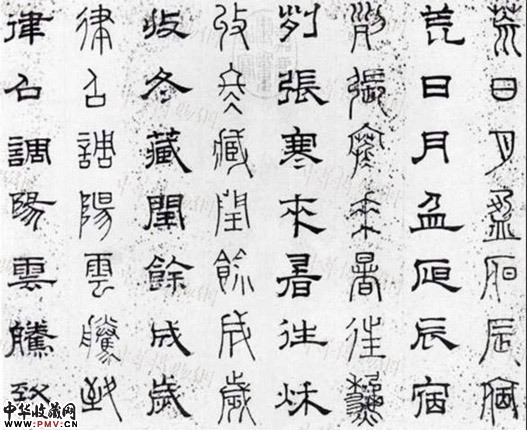 荒日月盈昃辰宿
荒日月盈昃辰宿
列張寒來暑往秋
列張寒來暑往秋
收冬藏閏餘成歲
收冬藏閏餘成歲
律召調陽雲騰致
律召調陽雲騰致
中华收藏网
www.PMV.cn